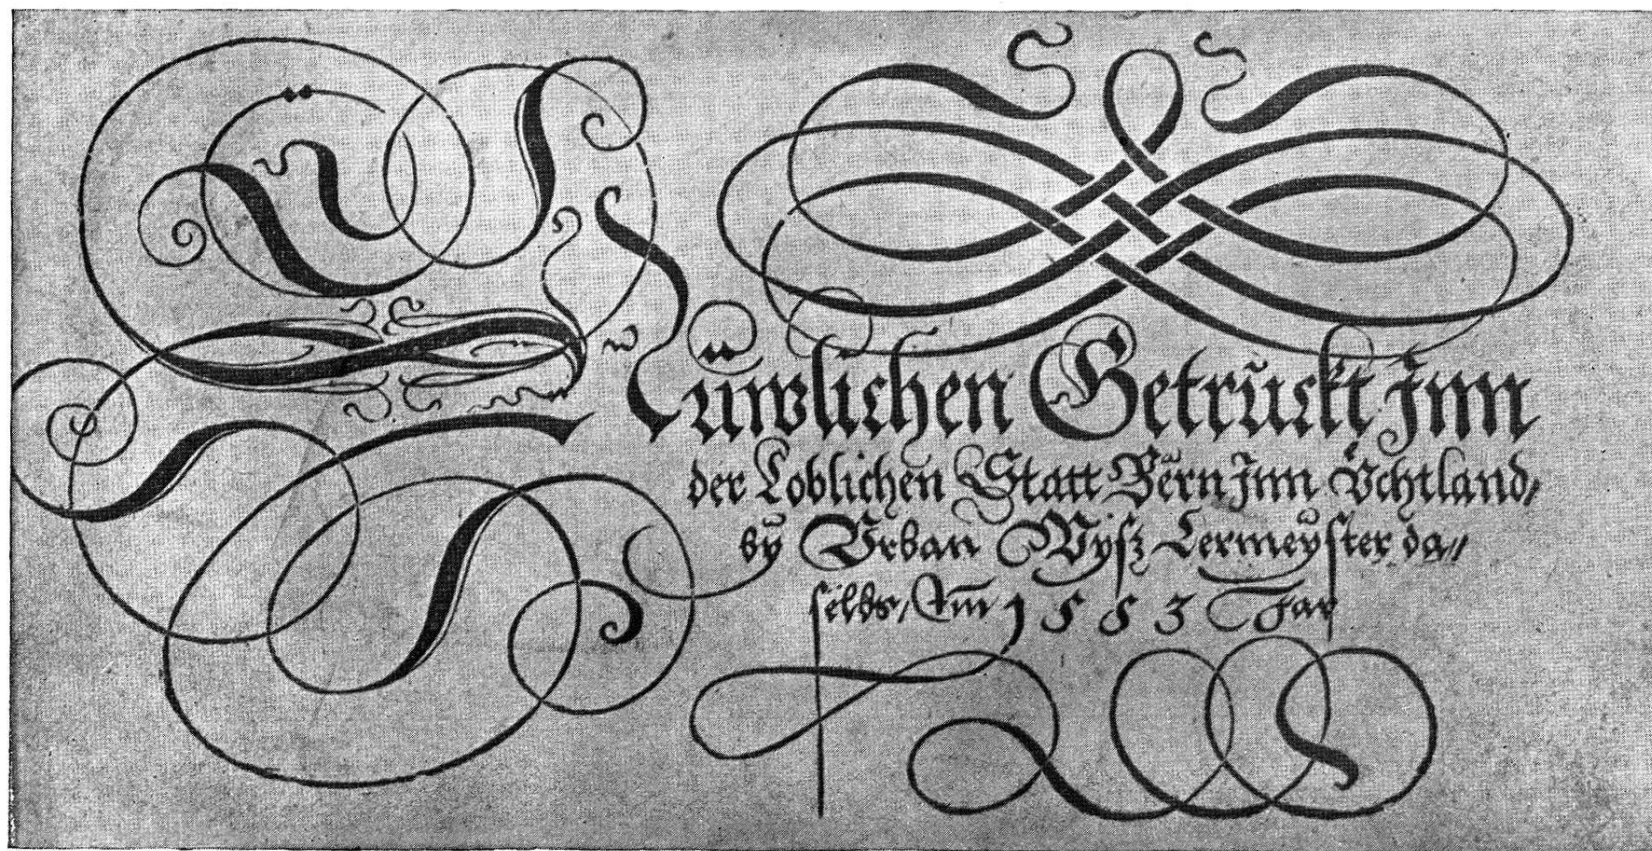 Nüwlichen Getruckt Jnn
der Loblichen Statt Bern Jnn Üchtland,
by Vrban Wysz Lermeyster da//
selbs, Am 1553 Jar